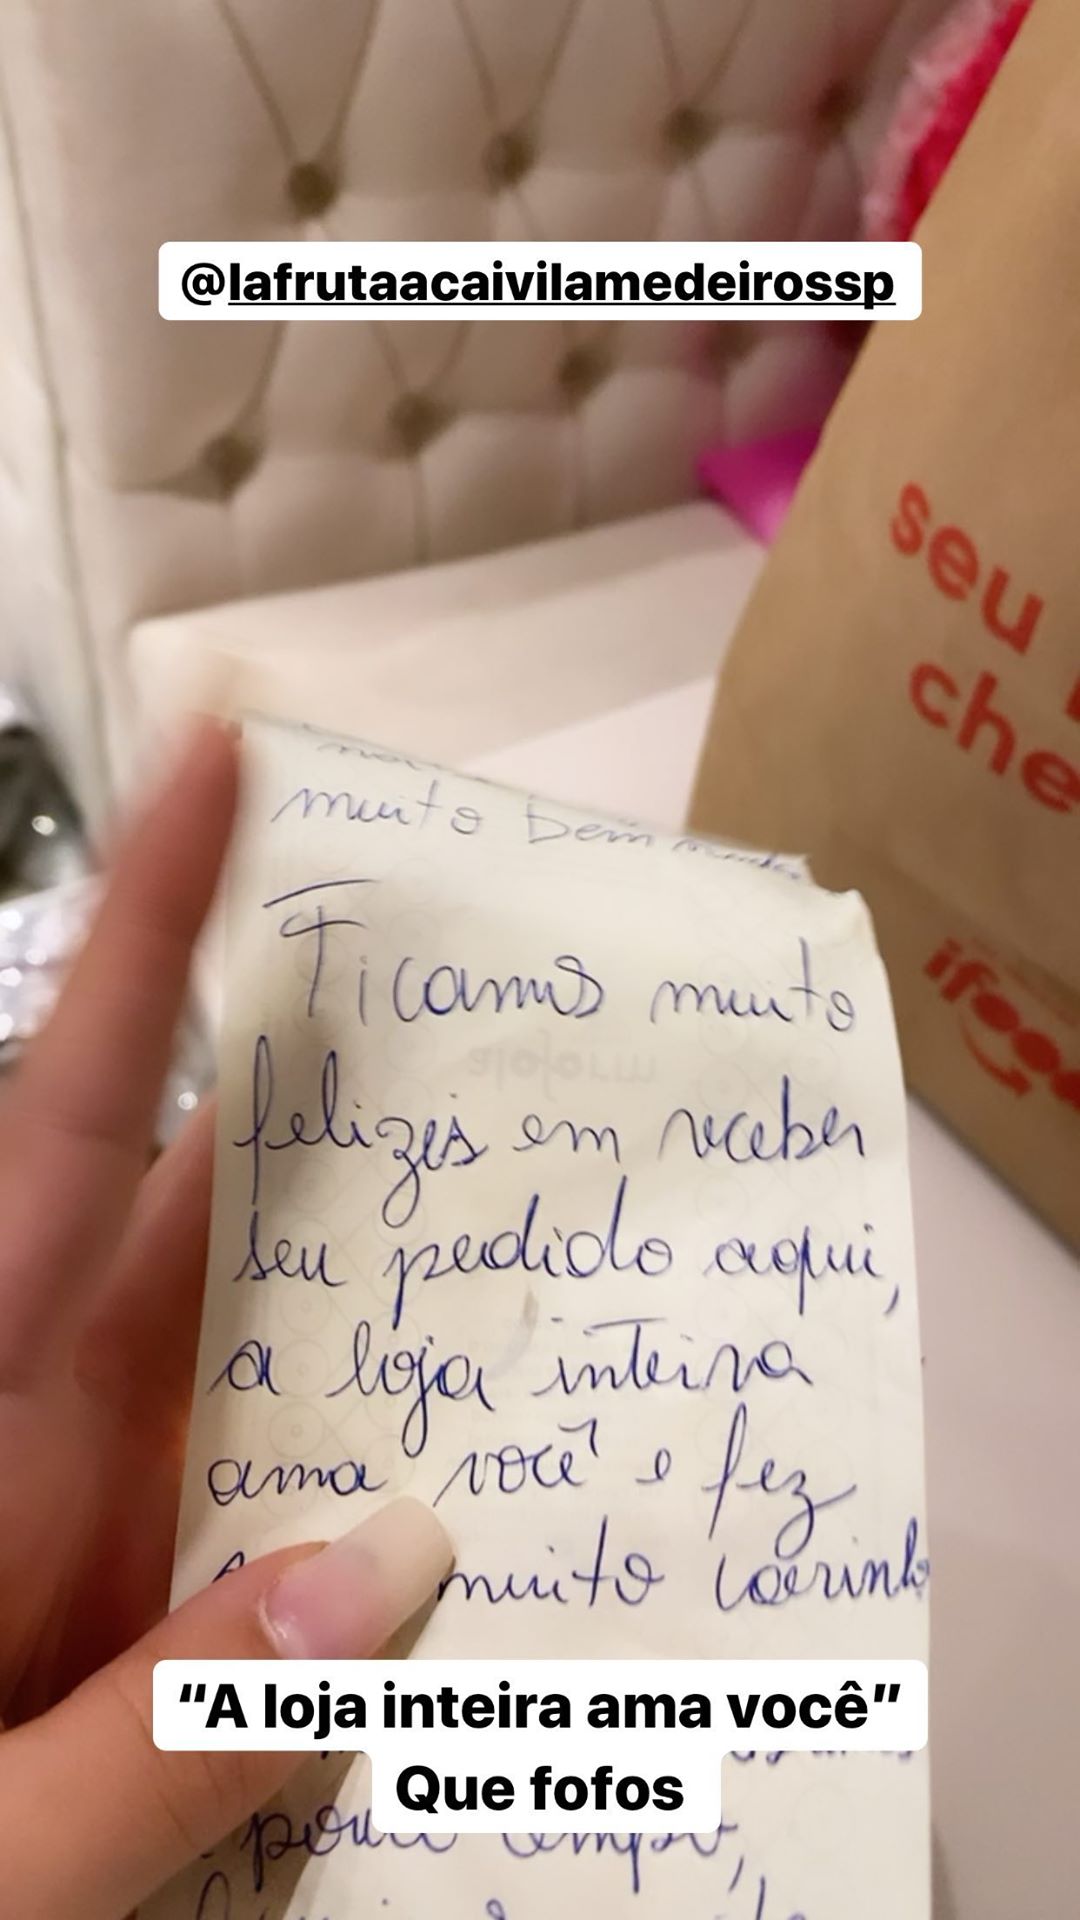 @lafrutaacaivilamedeirossp
seu
che
ifood
muito bem
Ficamos muito
felizes em receber
seu pedido aqui,
a loja inteira
ama você e fez
muito carinho
“A loja inteira ama você”
Que fofos
pouco tempo,